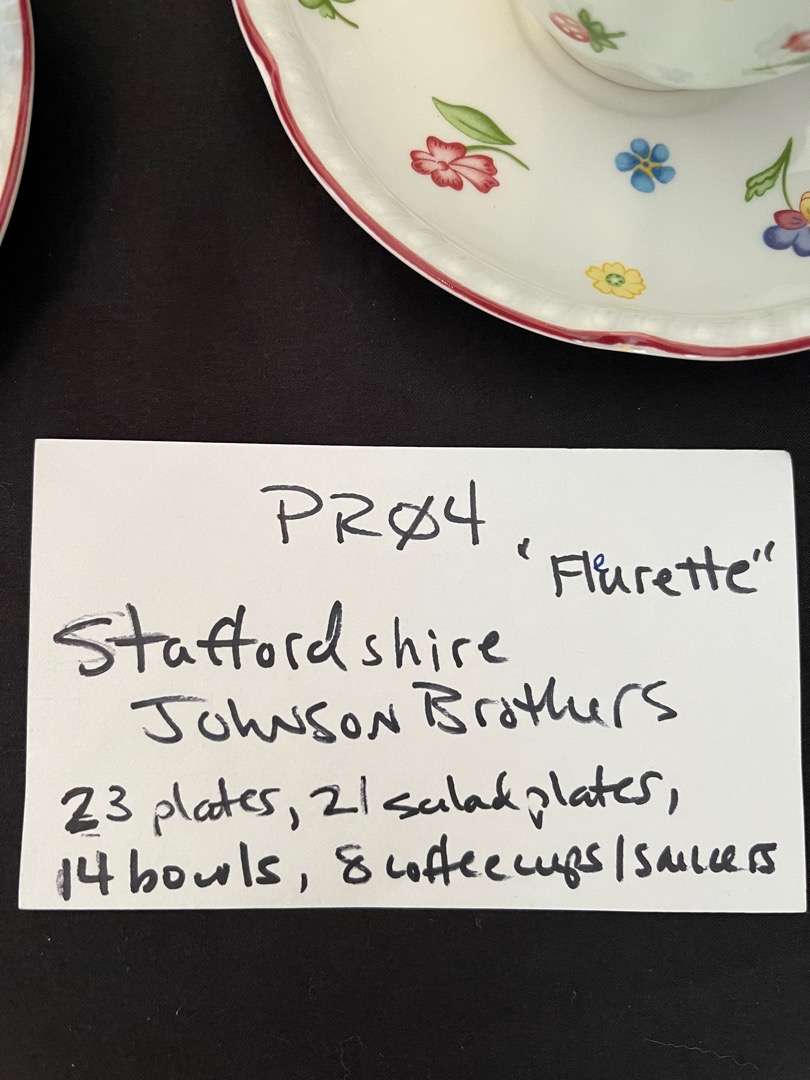 PRØ4
"Fleurette"
Staffordshire
Johnson Brothers
23 plates, 21 salad plates,
14 bowls, 8 coffee cups/saucers